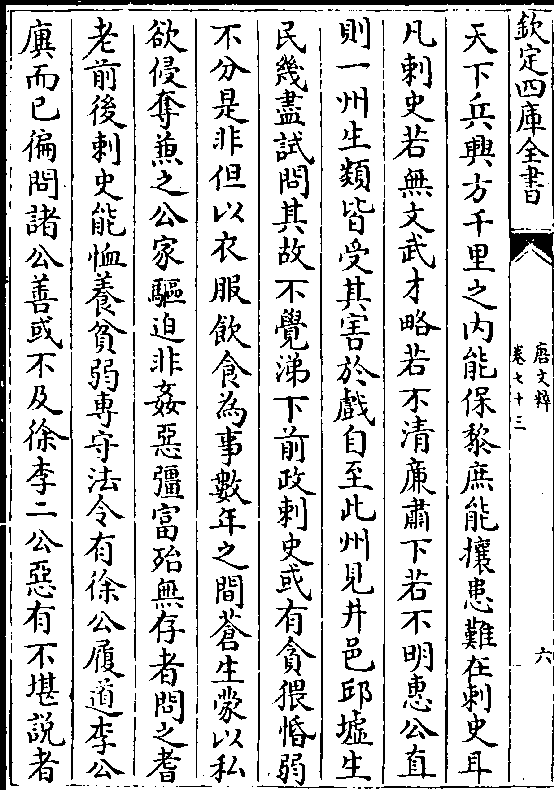 欽定四庫全書
唐文粹
卷七十三
六
天下兵興方千里之內能保黎庶能攘患難在刺史耳
凡刺史若無文武才略若不清廉肅下若不明惠公直
則一州生類皆受其害於戲自至此州見井邑邱墟生
民幾盡試問其故不覺涕下前政刺史或有貪猥惛弱
不分是非但以衣服飲食為事數年之間蒼生蒙以私
欲侵奪兼之公家驅迫非姦惡彊富殆無存者問之耆
老前後刺史能恤養貧弱専守法令有徐公履道李公
廙而已徧問諸公善或不及徐李二公惡有不堪説者